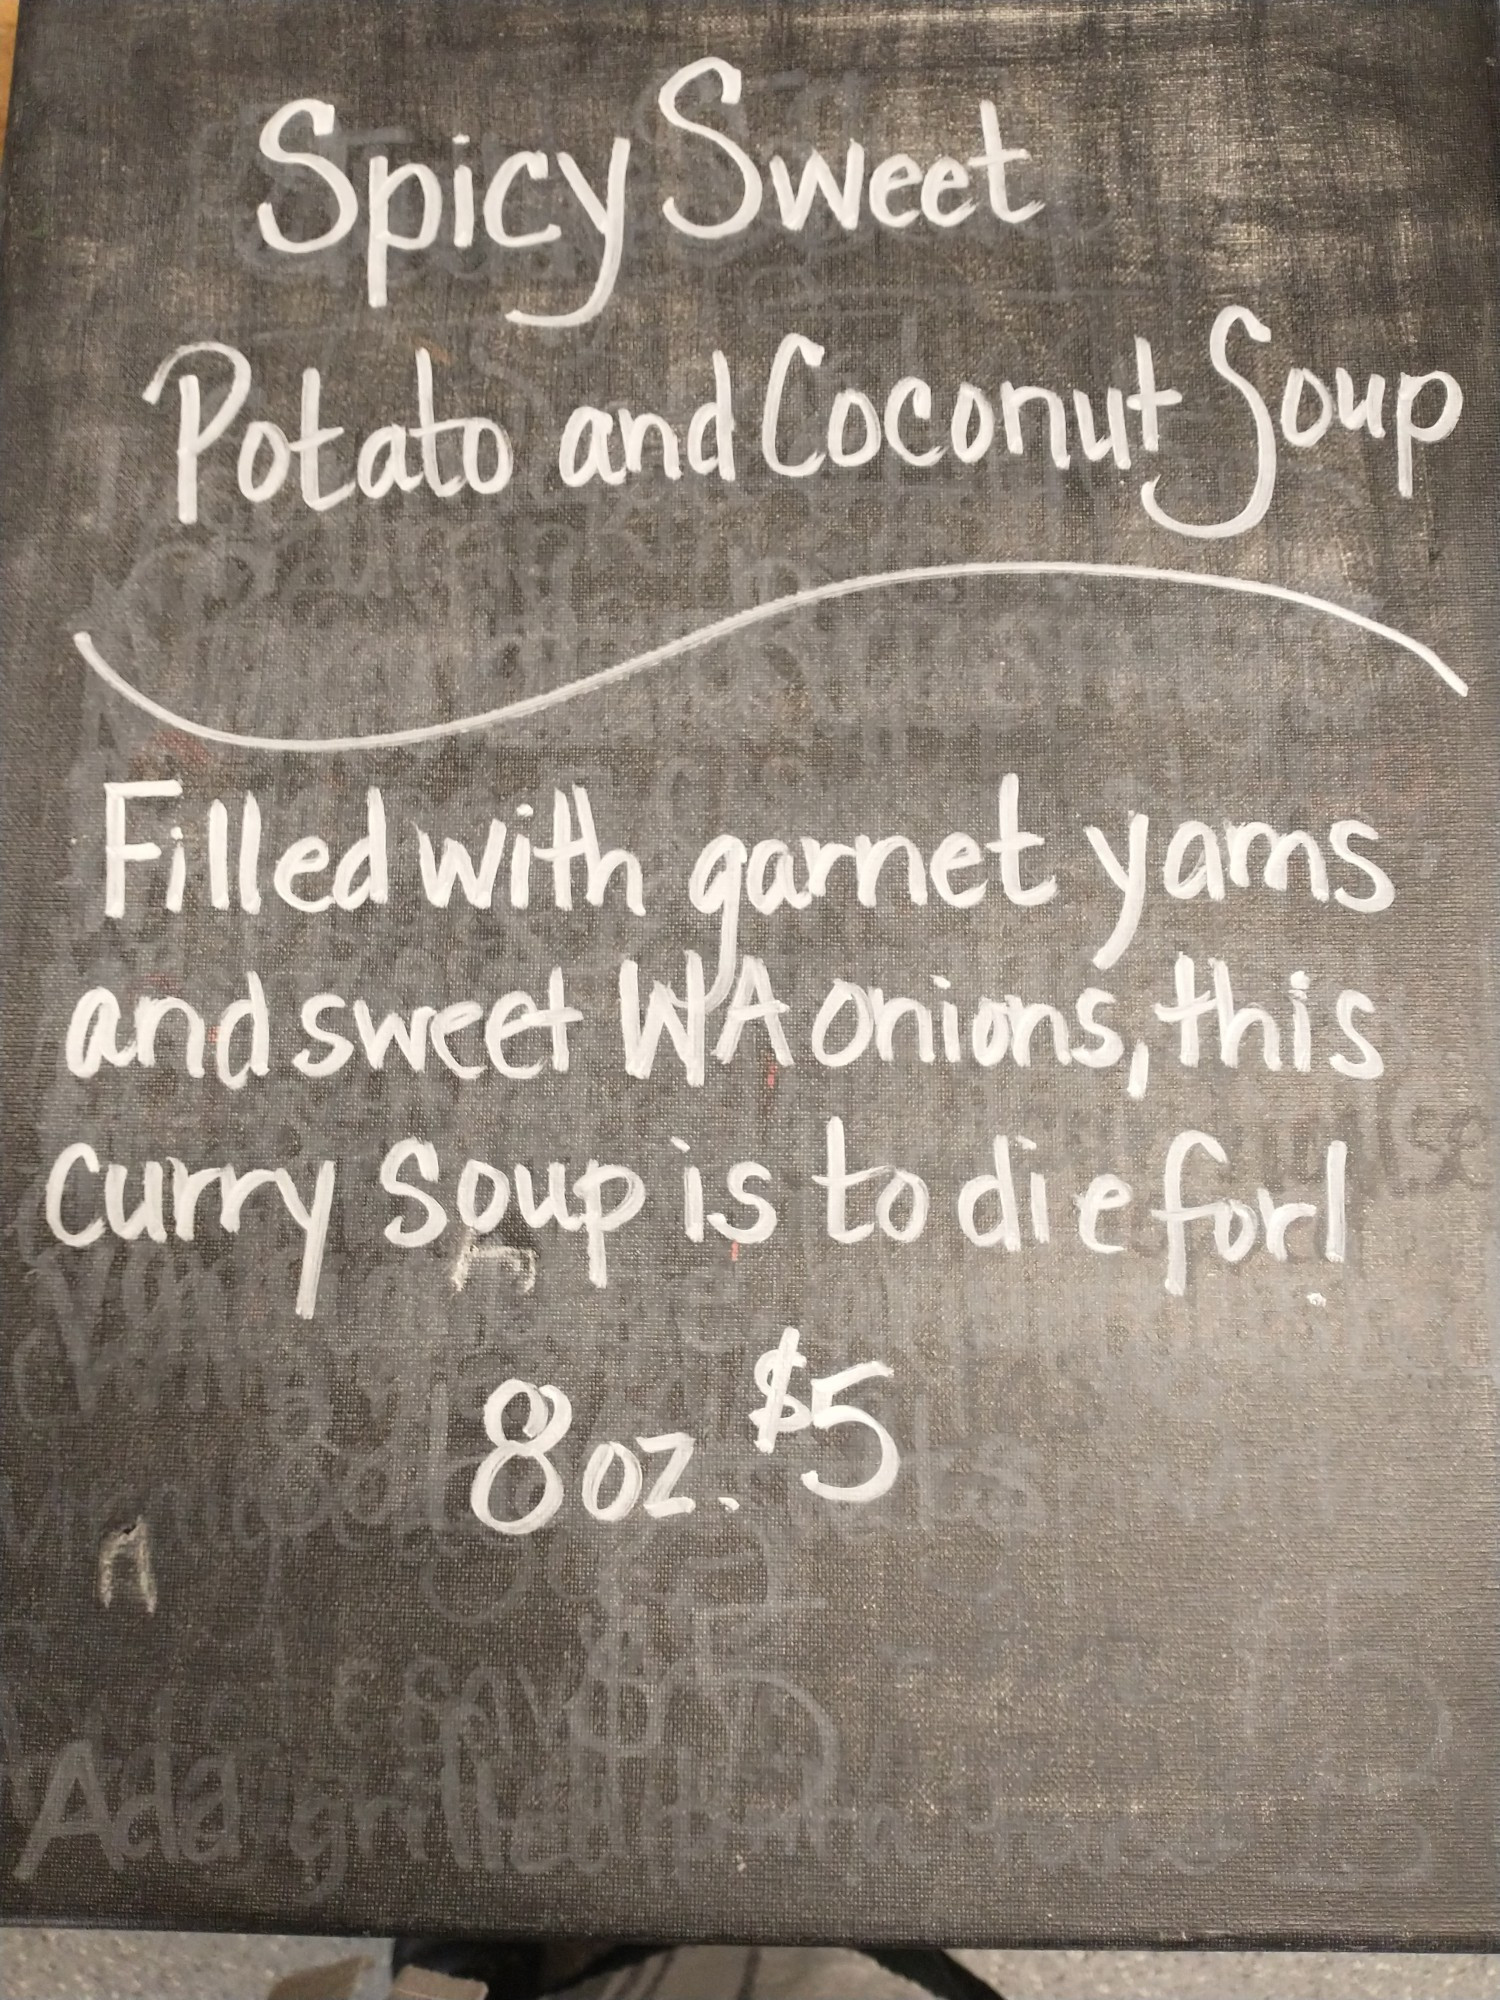 Spicy Sweet
Potato and Coconut Soup
Filled with garnet yams
and sweet WA onions, this
curry soup is to die for!
8 oz. $5
Add grilled